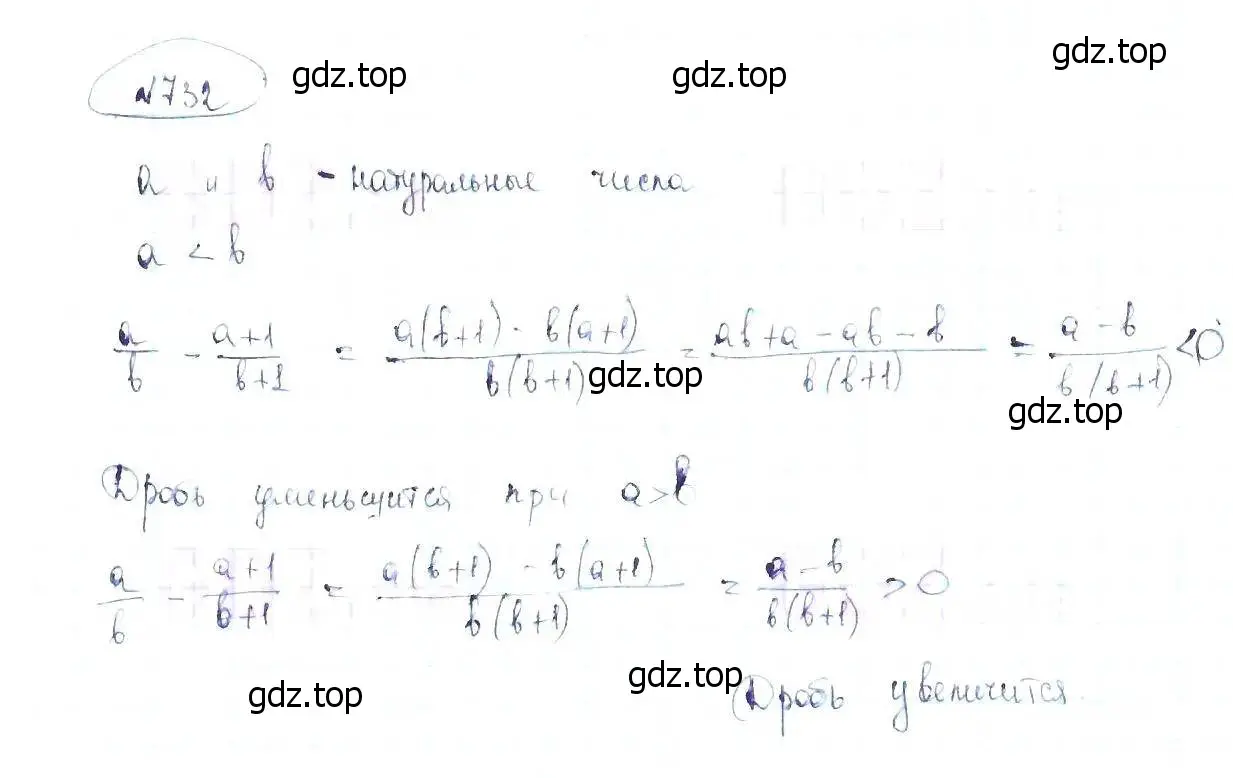 №732
gdz.top
gdz.top
gdz.top
a и b - натуральные числа
a < b
a/b - (a+1)/(b+1) = (a(b+1) - b(a+1))/(b(b+1)) = (ab+a-ab-b)/(b(b+1)) = (a-b)/(b(b+1)) < 0
gdz.top
gdz.top
Дробь уменьшится при a>b
a/b - (a+1)/(b+1) = (a(b+1) - b(a+1))/(b(b+1)) = (a-b)/(b(b+1)) > 0
gdz.top
gdz.top
Дробь увеличится.